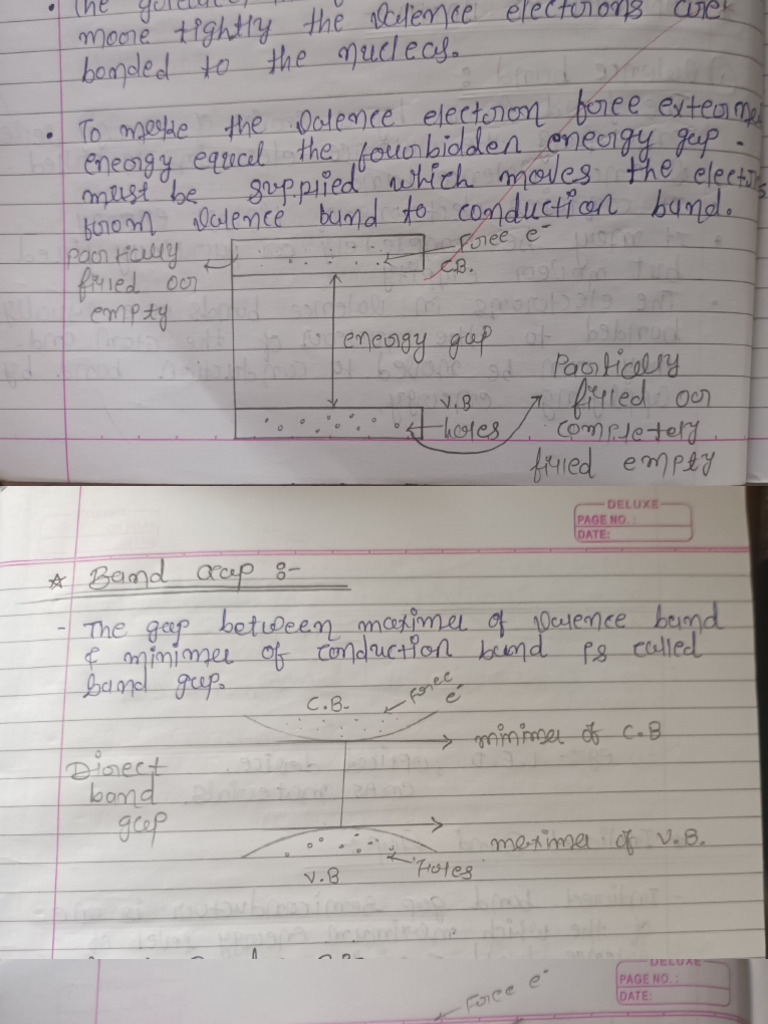 • The
more tightly the valence electrons are
bonded to the nucleas.
• To make the valence electron free external
energy equal the fourbidden energy gap.
must be supplied which moves the electrons
from valence band to conduction band.
Partically
filled or
empty
free e-
C.B.
energy gap
V.B
holes
Partically
filled or
completely
filled empty
DELUXE
PAGE NO.:
DATE:
☆ Band Gap :-
- The gap between maxima of valence band
& minima of conduction band is called
band gap.
C.B.
free
e-
minima of C.B
Direct
band
gap
maxima of V.B.
V.B
Holes
DELUXE
PAGE NO.:
DATE:
free e-